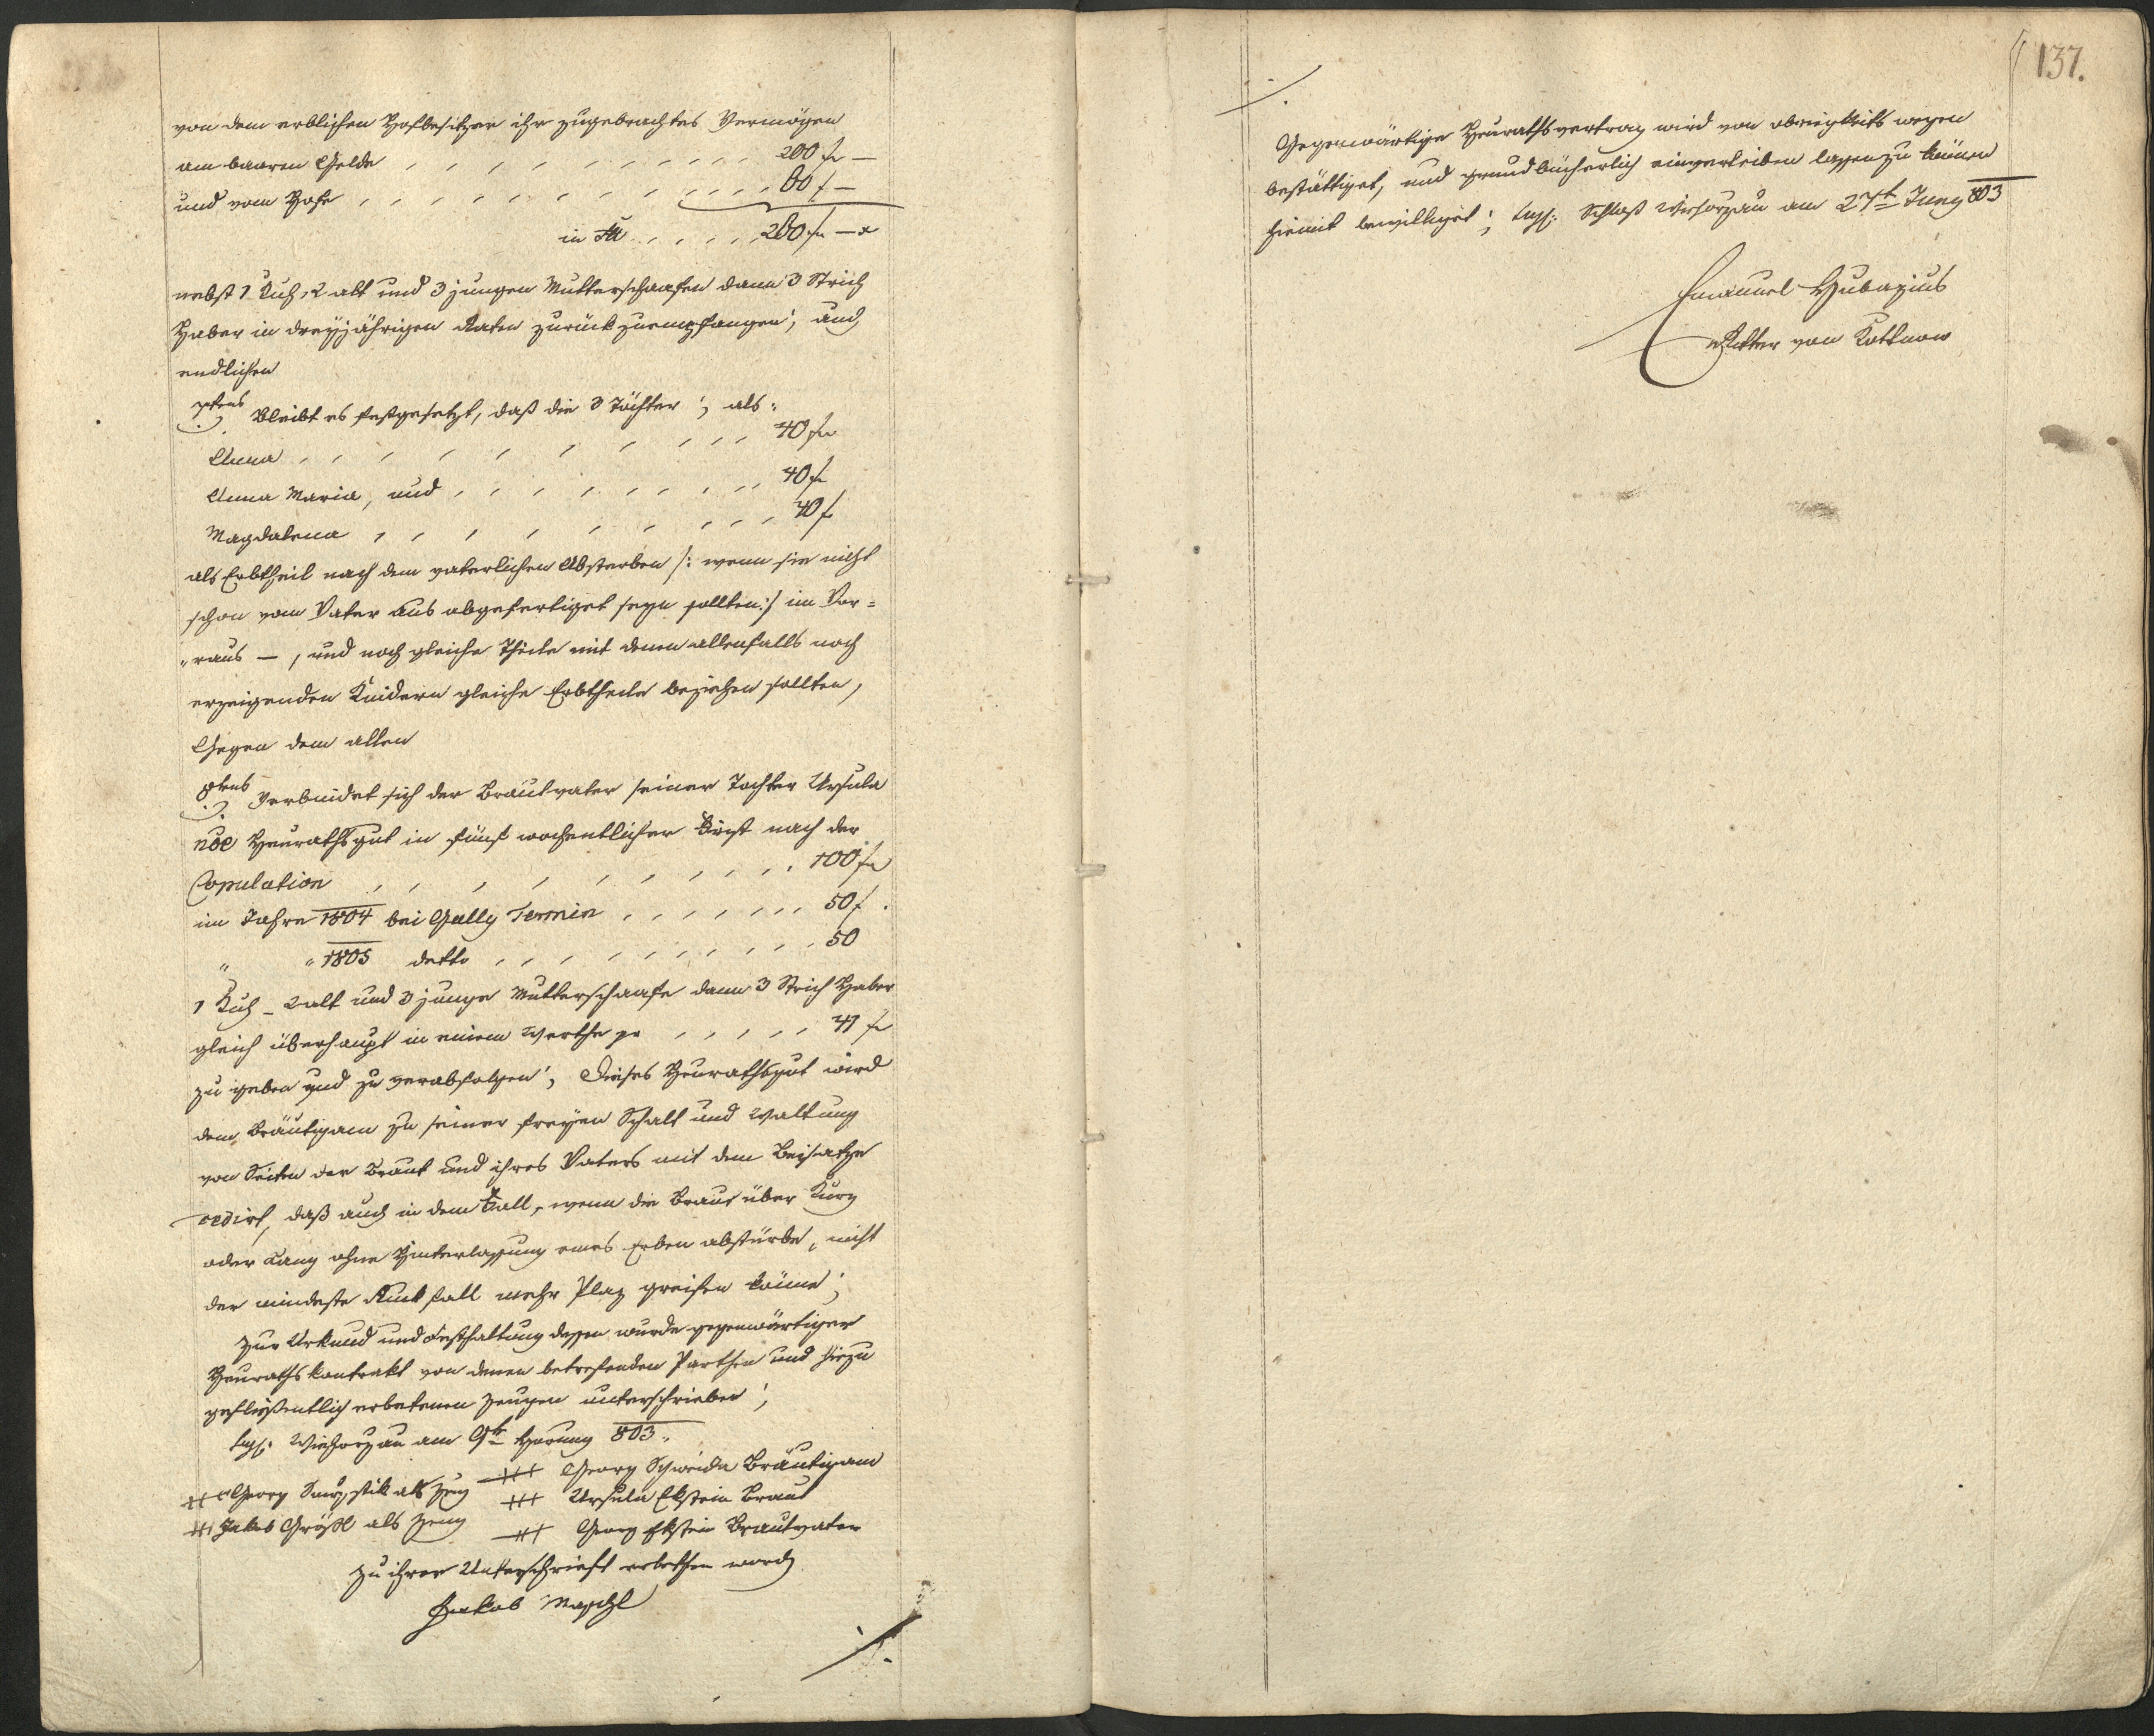 von dem erblichen Hofbesitzer ihr zugebrachtes Vermögen
am baaren Gelde , , , , , , , , , , , 200 f —
und vom Hofe , , , , , , , , , , , 80 f —
in Sa , , , , , 280 f — x
nebst 1 Kuh, 2 alt und 3 jungen Mutterschaafen dann 3 Strich
Haber in dreyjährigen Raten zurück zu empfangen; und
endlichen
7tens Bleibt es festgesetzt, daß die 3 Töchter; als:
Anna , , , , , , , , , 40 f
Anna Maria, und , , , , , , , , 40 f
Magdalena , , , , , , , , , 40 f
als Erbtheil nach dem vaterlichen Absterben /: wenn sie nicht
schon vom Vater aus abgefertiget seyn sollten :/ im Vor=
"raus —, und noch gleiche Theile mit denen allenfalls noch
erzeigenden Kindern gleiche Erbtheile beziehen sollten,
Gegen dem allen
8tens Verbindet sich der Brautvater seiner Tochter Ursula
nõe Heurathsgut in fünf wochentlicher Frist nach der
Copulation , , , , , , , , , , 100 f
im Jahre 1804 bei Gally Termin , , , , , , , 50 f.
" " 1805 detto , , , , , , , , , 50
1 Kuh – 2 alt und 3 junge Mutterschaafe dann 3 Strich Haber
gleich überhaupt in einem Werthe pr , , , , , 41 f
zu geben und zu verabfolgen; Dieses Heurathsgut wird
dem Bräutigam zu seiner freyen Schalt und Waltung
von Seiten der Braut und ihres Vaters mit dem Beisatze
cedirt, daß auch in dem Fall, wenn die Braut über Kurz
oder Lang ohne Hinterlassung eines Erben abstürbe, nicht
der mindeste Rückfall mehr Plaz greifen könne;
Zur Urkund und Festhaltung dessen wurde gegenwärtiger
Heurathskontrakt von denen betrefenden Parthen und hiezu
geflißentlich erbetenen Zeugen unterschrieben;
Sigs: Wiehorzau am 9te Hornung 803.
+++ Georg als Zeug +++ Georg Schweida Bräutigam
+++ Jakob Größl als Zeug +++ Ursula Ekstein Braut
+++ Georg Ekstein Brautvater
zu ihrer Unterschrieft erbethen word
Jakob Maschl
137.
Gegenwärtiger Heurathsvertrag wird von obrigkeits wegen
bestättiget, und grundbücherlich einverleiben lassen zu können
hiemit bewilliget; Sigs: Schloß Wiehorzau am 27t Juny 803
Emanuel Hubazius
Ritter von Kottnow